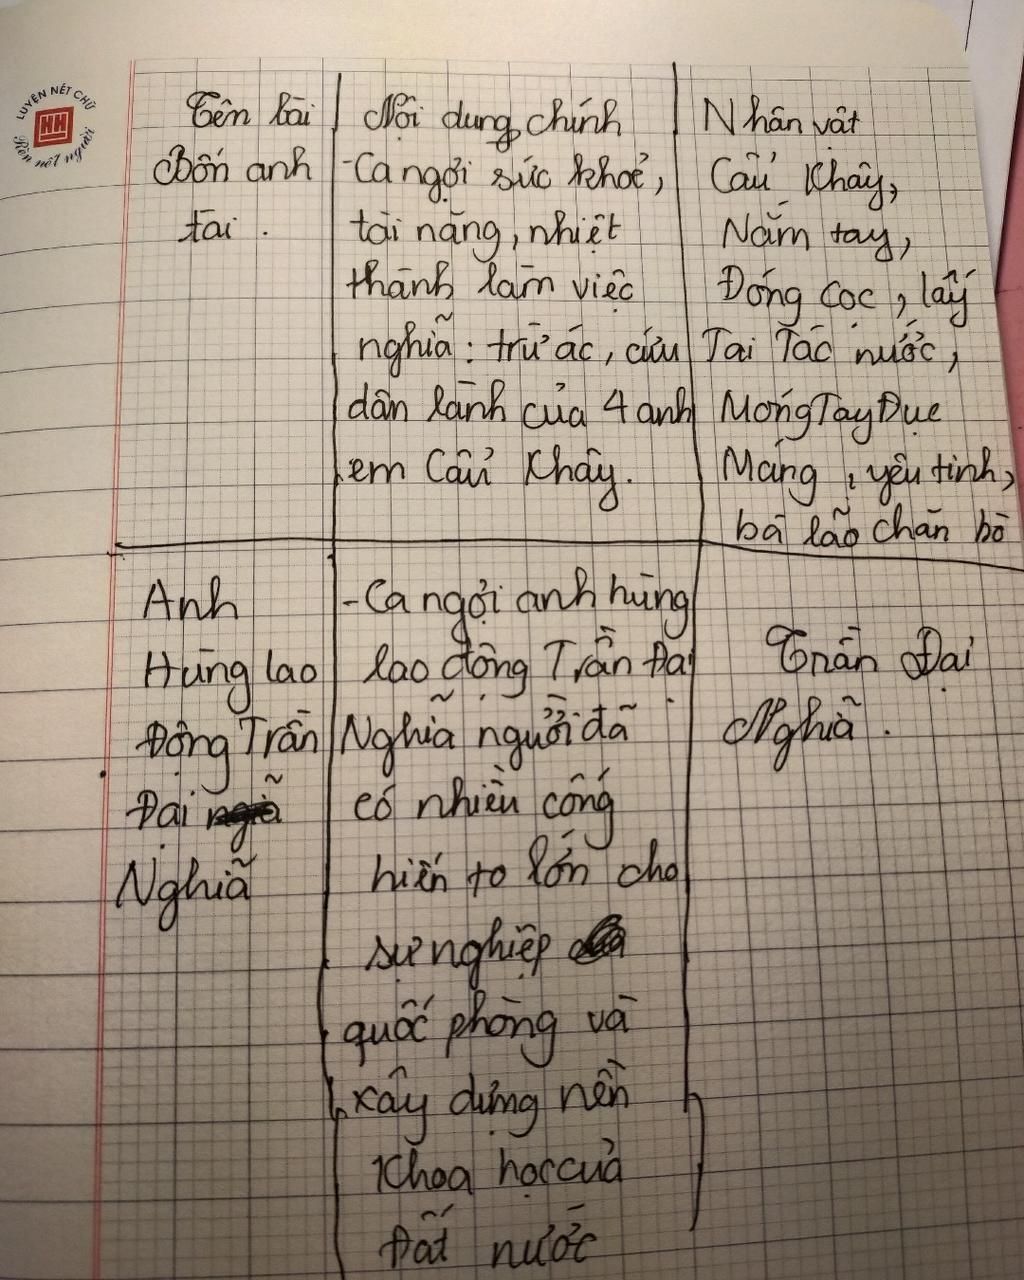 LUYỆN NÉT CHỮ
HH
Rèn nết người
Tên bài
Bốn anh
tài .
Nội dung chính
- Ca ngợi sức khoẻ,
tài năng, nhiệt
thành làm việc
nghĩa : trừ ác, cứu
dân lành của 4 anh
em Cẩu Khây.
Nhân vật
Cẩu Khây,
Nắm tay,
Đóng cọc, lấy
Tai Tác nước,
Móng Tay Đục
Máng, yêu tinh,
bà lão chăn bò
Anh
Hùng lao
Động Trần
Đại
Nghĩa
- Ca ngợi anh hùng
lao động Trần Đại
Nghĩa người đã
có nhiều cống
hiến to lớn cho
sự nghiệp
quốc phòng và
xây dựng nền
Khoa học của
Đất nước
Trần Đại
Nghĩa .